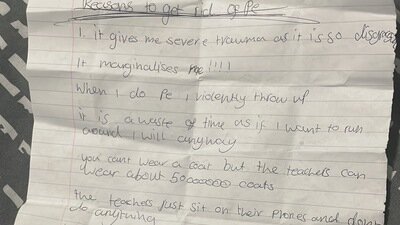 Reasons to get rid of Pe
1. it gives me severe trauma as it is so
It marginalises me!!!!
When I do Pe I violently throw up
it is a waste of time as if I want to run
around I will anyway
you cant wear a coat but the teachers can
wear about 50000000 coats
the teachers just sit on their phones and dont
do anything